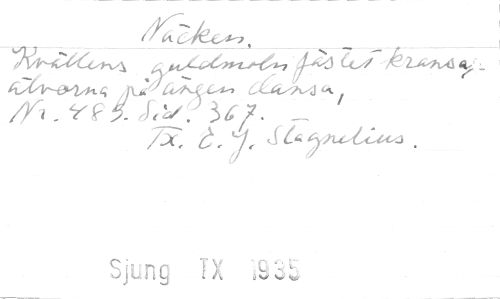 Näcken.
Kvällens guldmoln fästet kransa,-
älvorna på ängen dansa,
Nr. 483. Sid. 367.
Tx. E. J. Stagnelius.
Sjung IX 1935